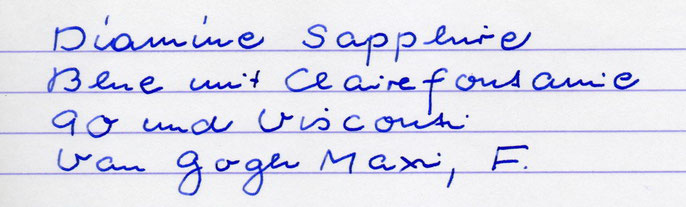 Diamine Sapphire
Blue mit Clairefontaine
90 und Visconti
Van Gogh Maxi, F.